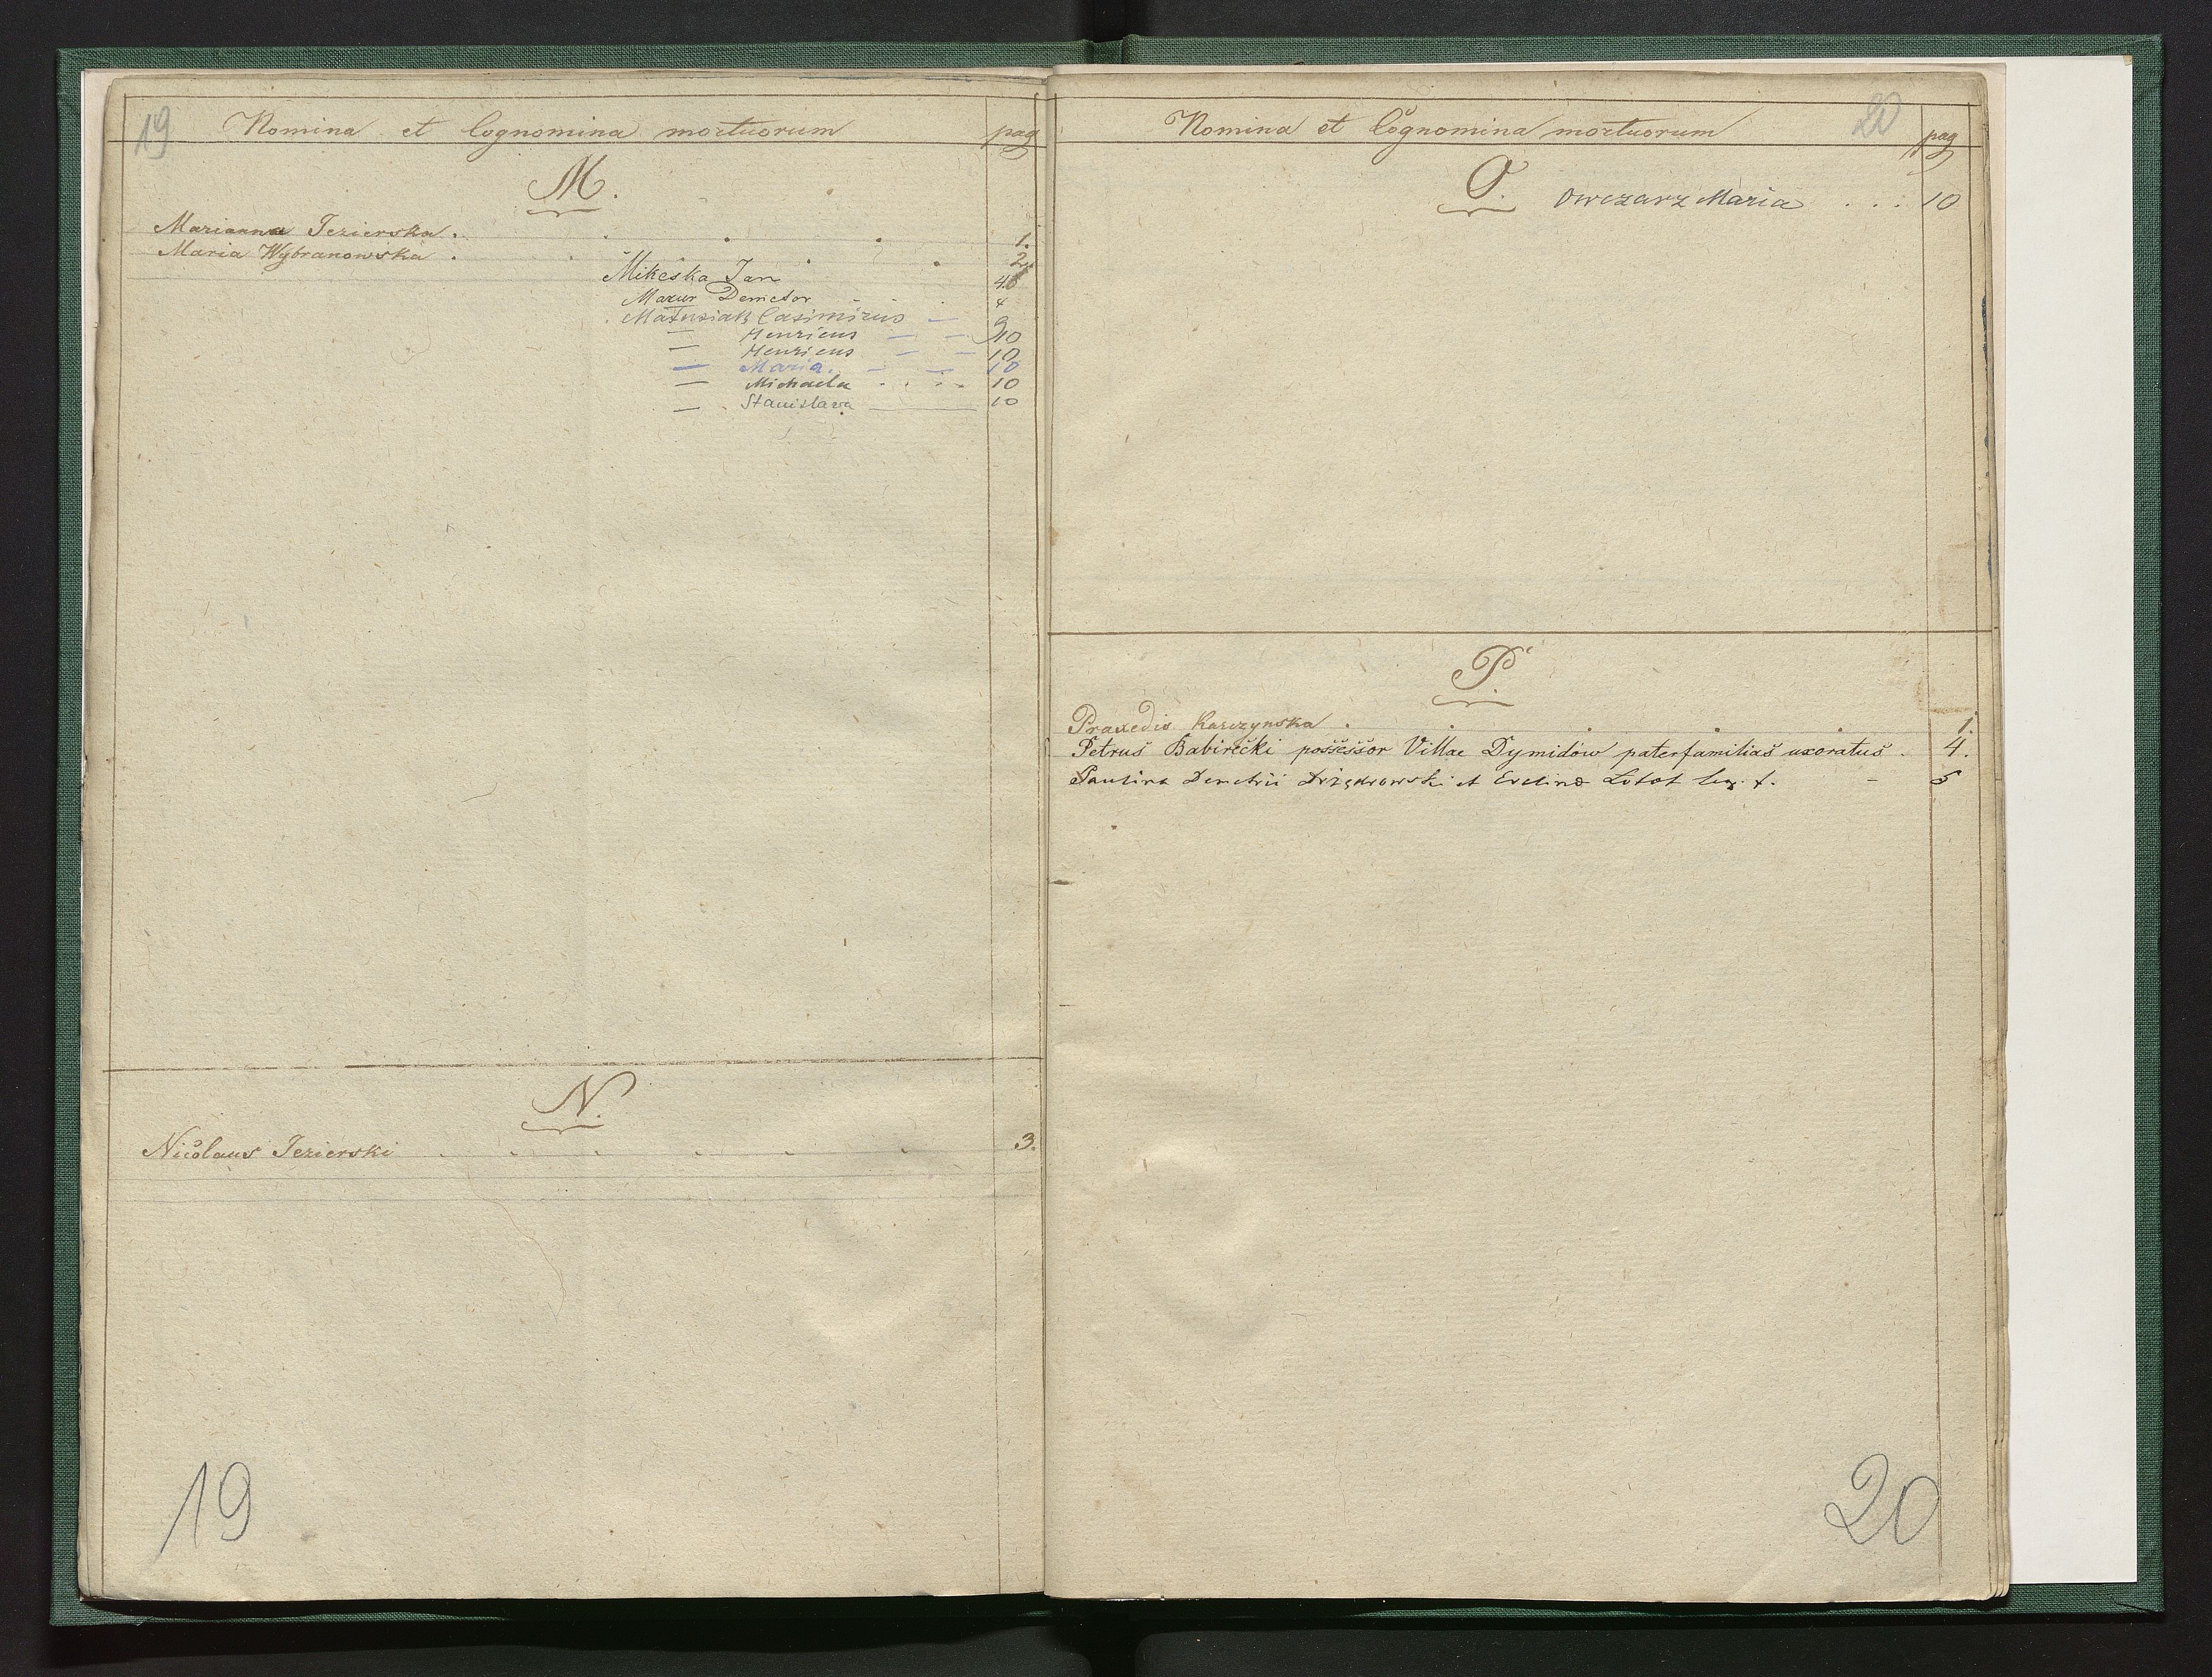 19 Nomina et Cognomina mortuorum pag
M.
Marianna Jezierska . . . . 1.
Maria Wybranowska . . . . 2.
Mikeska Jan
Mazur Demeter . . . 4
Matusiak Casimirus — 9
— Henricus — — 10
— Henricus — — 10
— Maria. — — 10
— Michaela . . . . 10
— Stanislava — 10
N.
Nicolaus Jezierski . . . . . . 3.
19
Nomina et Cognomina mortuorum 20 pag
O. Owczarz Maria . . . 10
P.
Praxedis Karczynska . . . . 1.
Petrus Babirecki possessor Villae Dymidów paterfamilias uxoratus . 4.
Paulina Demetrii et Evelina leg. f. - 5
20